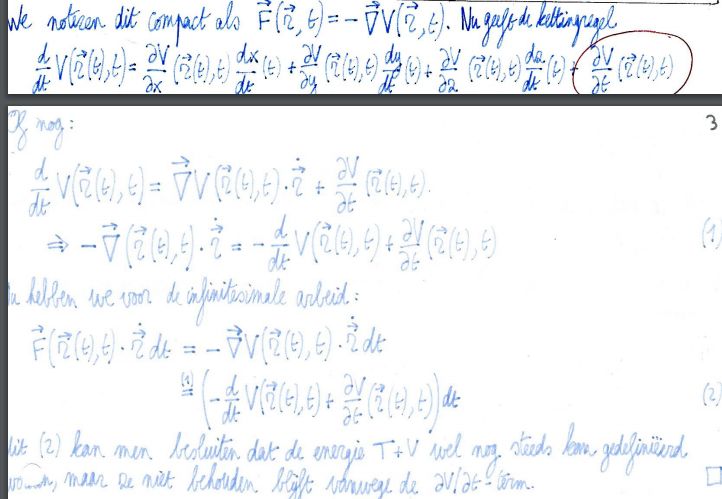 We noteren dit compact als F⃗(r⃗, t) = −∇⃗V(r⃗, t). Nu geeft de kettingregel
d/dt V(r⃗(t),t) = ∂V/∂x (r⃗(t),t) dx/dt (t) + ∂V/∂y (r⃗(t),t) dy/dt (t) + ∂V/∂z (r⃗(t),t) dz/dt (t) + ∂V/∂t (r⃗(t),t)
Of nog: 3
d/dt V(r⃗(t),t) = ∇⃗V(r⃗(t),t) · ṙ⃗ + ∂V/∂t (r⃗(t),t).
⇒ −∇⃗(r⃗(t),t) · ṙ⃗ = − d/dt V(r⃗(t),t) + ∂V/∂t (r⃗(t),t) (1)
Nu hebben we voor de infinitesimale arbeid:
F⃗(r⃗(t),t) · ṙ⃗ dt = −∇⃗V(r⃗(t),t) · ṙ⃗ dt
(1) = (− d/dt V(r⃗(t),t) + ∂V/∂t (r⃗(t),t)) dt (2)
Uit (2) kan men besluiten dat de energie T+V wel nog steeds kan gedefinieerd
maar ze niet behouden blijft vanwege de ∂V/∂t-term. □